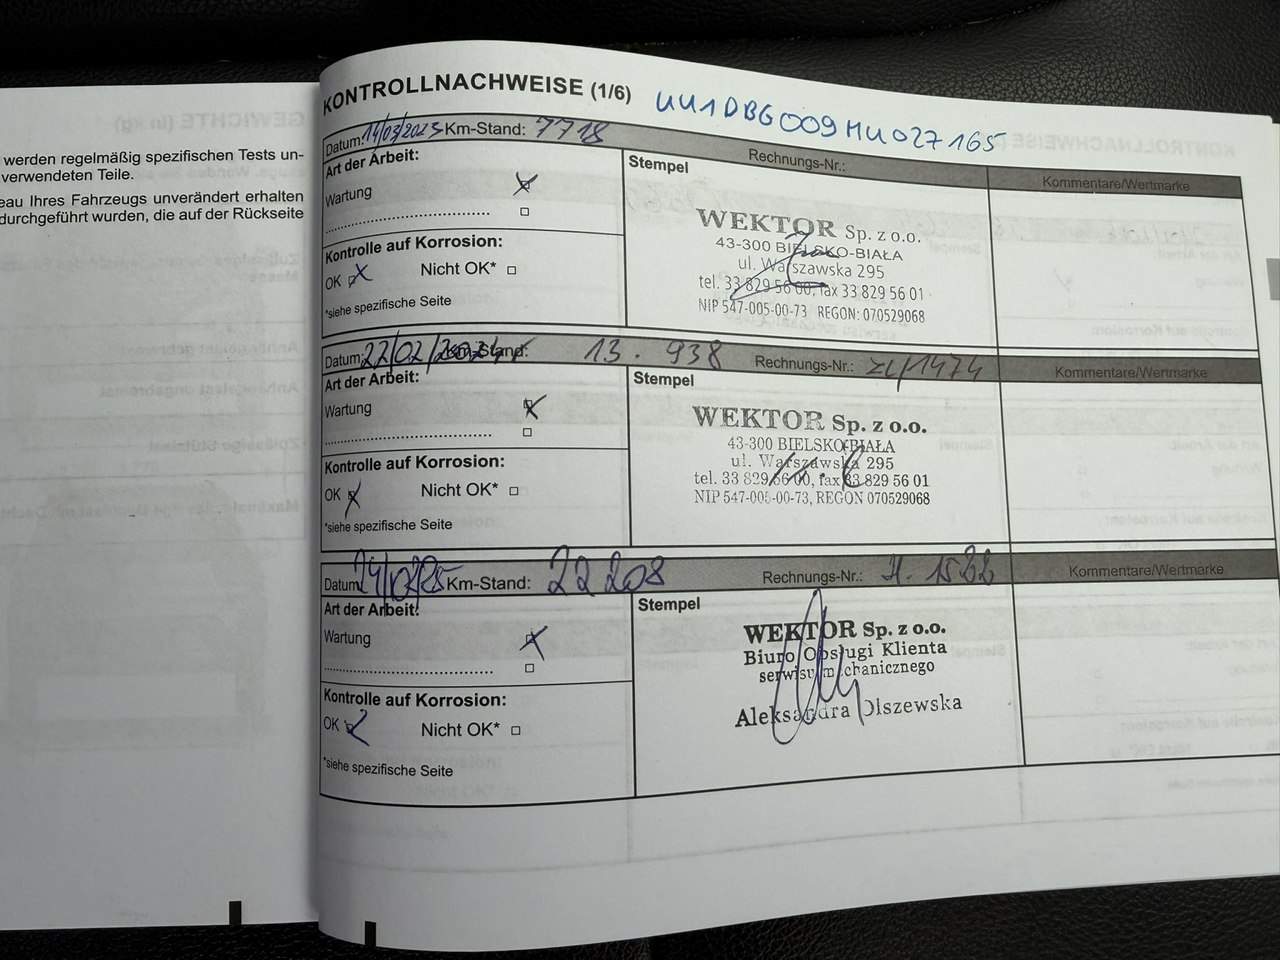 werden regelmäßig spezifischen Tests un-
verwendeten Teile.
eau Ihres Fahrzeugs unverändert erhalten
durchgeführt wurden, die auf der Rückseite
KONTROLLNACHWEISE (1/6) UU1DBG009MU027165
Datum: 14/03/2023 Km-Stand: 7718 Rechnungs-Nr.: Kommentare/Wertmarke
Art der Arbeit:
Wartung
Kontrolle auf Korrosion:
OK Nicht OK*
*siehe spezifische Seite
Stempel
WEKTOR Sp. z o.o.
43-300 BIELSKO-BIAŁA
ul. Warszawska 295
tel. 33 829 56 00, fax 33 829 56 01
NIP 547-005-00-73 REGON: 070529068
Datum: 22/02/2024 Km-Stand: 13.938 Rechnungs-Nr.: ZL/1474 Kommentare/Wertmarke
Art der Arbeit:
Wartung
Kontrolle auf Korrosion:
OK Nicht OK*
*siehe spezifische Seite
Stempel
WEKTOR Sp. z o.o.
43-300 BIELSKO-BIAŁA
ul. Warszawska 295
tel. 33 829 56 00, fax 33 829 56 01
NIP 547-005-00-73, REGON 070529068
Datum: Km-Stand: 22 208 Rechnungs-Nr.: Kommentare/Wertmarke
Art der Arbeit:
Wartung
Kontrolle auf Korrosion:
OK Nicht OK*
*siehe spezifische Seite
Stempel
WEKTOR Sp. z o.o.
Biuro Obsługi Klienta
serwisu mechanicznego
Aleksandra Olszewska